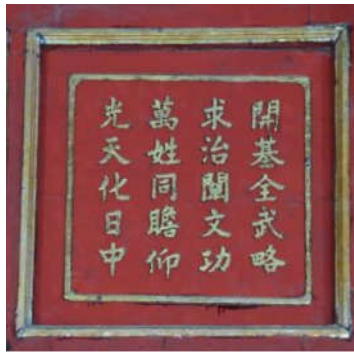 開基全武略
求治闡文功
萬姓同瞻仰
光天化日中